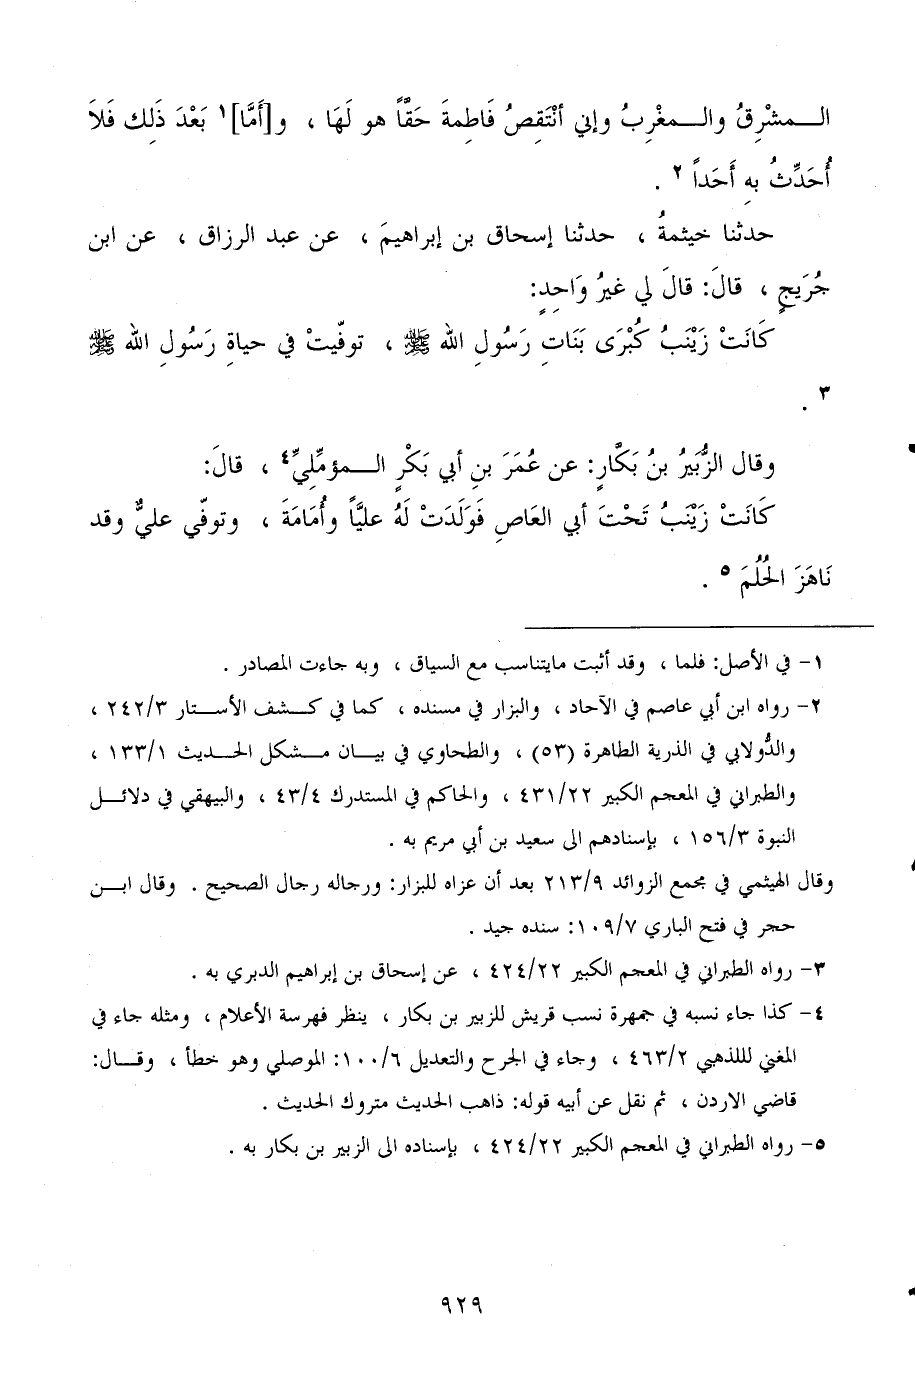 المشْرِقُ والمغْرِبُ وإني أنْتَقِصُ فَاطِمةَ حَقَّاً هو لَهَا ، و[أَمَّا]١ بَعْدَ ذَلِك فَلاَ
أُحَدِّثُ بِه أَحَداً ٢ .
حدثنا خيثمةُ ، حدثنا إسحاق بن إبراهيمَ ، عن عبد الرزاق ، عن ابن
جُرَيجٍ ، قالَ: قالَ لي غيرُ وَاحِدٍ:
كَانَتْ زَيْنَبُ كُبْرَى بَنَاتِ رَسُولِ الله ﷺ ، توفّيتْ في حياةِ رَسُولِ الله ﷺ
٣ .
وقال الزُّبَيرُ بنُ بَكَّارٍ: عن عُمَرَ بنِ أبي بَكْرٍ المؤمِّليِّ٤ ، قالَ:
كَانَتْ زَيْنَبُ تَحْتَ أبي العَاصِ فَوَلَدَتْ لَهُ عليَّاً وأُمَامَةَ ، وتوفّي عليٌّ وقد
نَاهَزَ الحُلُمَ ٥ .
١- في الأصل: فلما ، وقد أثبت مايتناسب مع السياق ، وبه جاءت المصادر .
٢- رواه ابن أبي عاصم في الآحاد ، والبزار في مسنده ، كما في كشف الأستار ٢٤٢/٣ ،
والدُّولابي في الذرية الطاهرة (٥٣) ، والطحاوي في بيان مشكل الحديث ١٣٣/١ ،
والطبراني في المعجم الكبير ٤٣١/٢٢ ، والحاكم في المستدرك ٤٣/٤ ، والبيهقي في دلائل
النبوة ١٥٦/٣ ، بإسنادهم الى سعيد بن أبي مريم به .
وقال الهيثمي في مجمع الزوائد ٢١٣/٩ بعد أن عزاه للبزار: ورجاله رجال الصحيح . وقال ابن
حجر في فتح الباري ١٠٩/٧: سنده جيد .
٣- رواه الطبراني في المعجم الكبير ٤٢٤/٢٢ ، عن إسحاق بن إبراهيم الدبري به .
٤- كذا جاء نسبه في جمهرة نسب قريش للزبير بن بكار ، ينظر فهرسة الأعلام ، ومثله جاء في
المغني لللذهبي ٤٦٣/٢ ، وجاء في الجرح والتعديل ١٠٠/٦: الموصلي وهو خطأ ، وقال:
قاضي الاردن ، ثم نقل عن أبيه قوله: ذاهب الحديث متروك الحديث .
٥- رواه الطبراني في المعجم الكبير ٤٢٤/٢٢ ، بإسناده الى الزبير بن بكار به .
٩٢٩